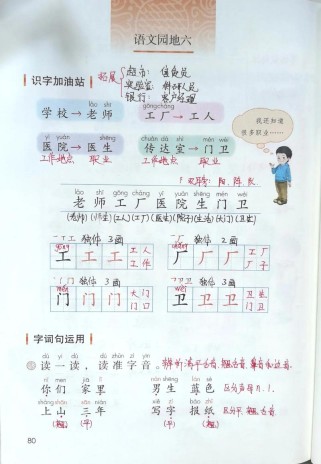 语文园地六
识字加油站
拓展
超市：售货员
实验室：科研人员
银行：客户经理
lǎo shī
gōngchǎng
学校→老师
工厂→工人
我还知道
很多职业……
yī yuàn
shēng
chuán dá shì
mén wèi
医院→医生
传达室→门卫
工作地点 职业
工作地点 职业
lǎo shī gōng chǎng yī yuàn shēng mén wèi
老师工厂医院生门卫
(老师)(工人)(工厂)(医生)(生活)(大门)(卫生)
独体 3画
独体 2画
工 工 工 工人
工作
厂 厂 厂 工厂
厂子
独体 3画
独体 3画
门 门 门 大门
门口
卫 卫 卫 卫生
门卫
字词句运用
dú yi dú
dú zhǔn zì yīn
读一读，读准字音。
nǐ men
jiā lǐ
nán shēng
lán sè
你们 家里
男生 蓝色
区分声母n、l。
shàng shān
sān nián
xiě zì
bào zhǐ
上山 三年
写字 报纸
区分平、翘舌音
(翘) (平)
(平) (翘)
80